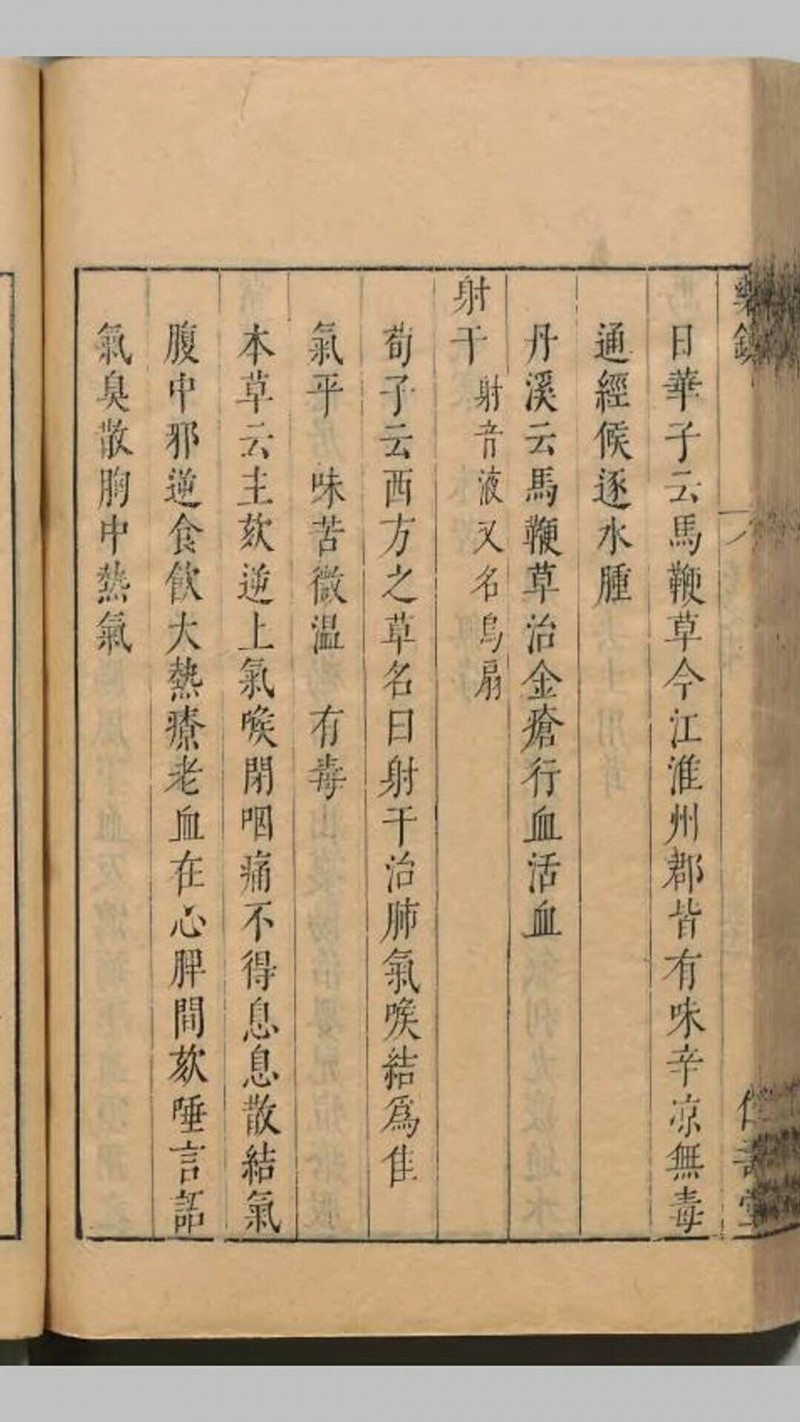 日華子云馬鞭草今江淮州郡皆有味辛凉無毒
通經候逐水腫
丹溪云馬鞭草治金瘡行血活血
射干射音液又名烏扇
荀子云西方之草名曰射干治肺氣喉結爲佳
氣平　味苦微温　有毒
本草云主欬逆上氣喉閉咽痛不得息息散結氣
腹中邪逆食飲大熱療老血在心脾間欬唾言語
氣臭散胸中熱氣